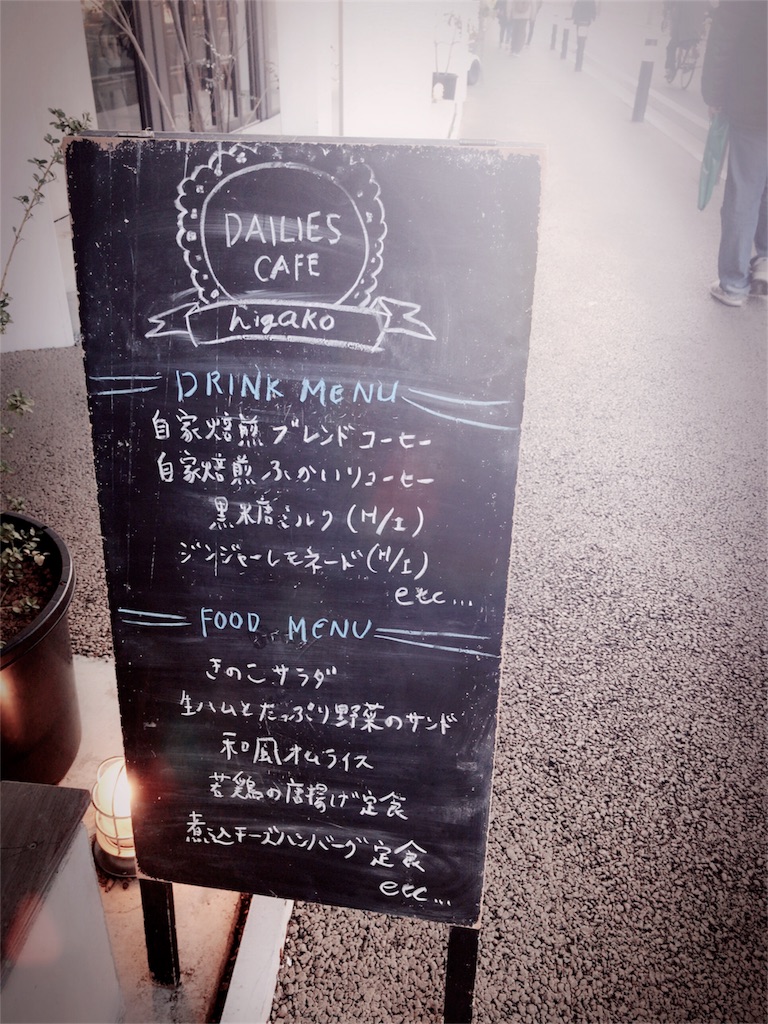 DAILIES
CAFE
higako
DRINK MENU
自家焙煎ブレンドコーヒー
自家焙煎ふかいりコーヒー
黒糖ミルク(H/I)
ジンジャーレモネード(H/I)
etc...
FOOD MENU
きのこサラダ
生ハムとたっぷり野菜のサンド
和風オムライス
若鶏の唐揚げ定食
煮込チーズハンバーグ定食
etc...